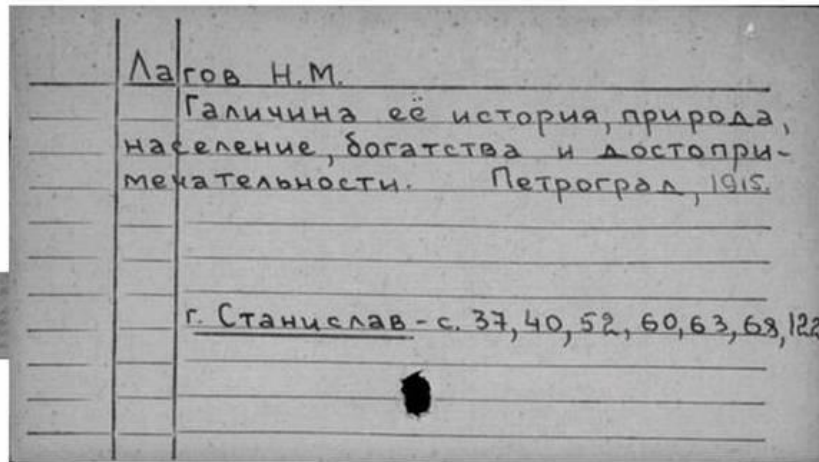 Лагов Н.М.
Галичина её история, природа,
население, богатства и достопри-
мечательности. Петроград, 1915.
г. Станислав - с. 37, 40, 52, 60, 63, 68, 122